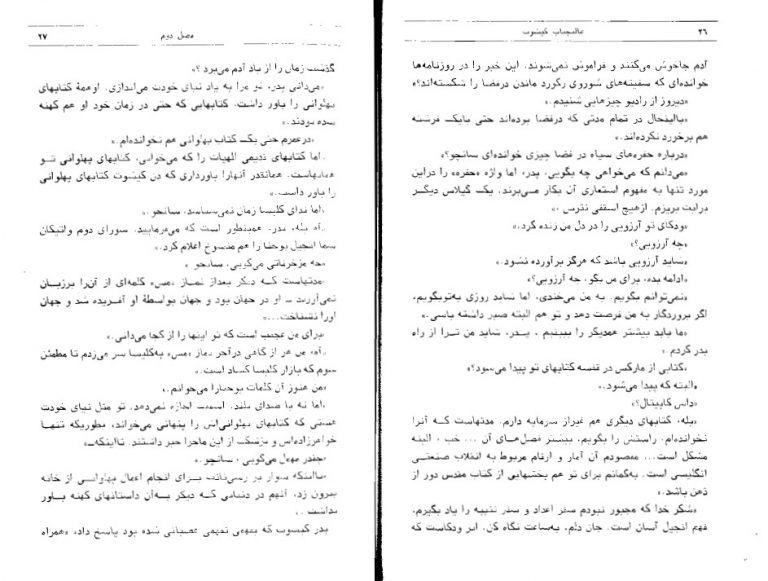 ۲۶
عالیجناب کیشوت
آدم چاخوش می‌کنند و فراموش نمی‌شوند. این خبر را در روزنامه‌ها
خوانده‌ای که سفینه‌های شوروی رکورد ماندن درفضا را شکسته‌اند؟»
«دیروز از رادیو چیزهایی شنیدم.»
«بااینحال در تمام مدتی که درفضا بوده‌اند حتی بایک فرشته
هم برخورد نکرده‌اند.»
«درباره حفره‌های سیاه در فضا چیزی خوانده‌ای سانچو؟»
«می‌دانم که می‌خواهی چه بگویی، پدر، اما واژه «حفره» را دراین
مورد تنها به مفهوم استعاری آن بکار می‌برند. یک گیلاس دیگر
برایت بریزم. ازهیچ اسقفی نترس.»
«ودکای تو آرزویی را در دل من زنده کرد.»
«چه آرزویی؟»
«شاید آرزویی باشد که هرگز برآورده نشود.»
«ادامه بده، برای من بگو، چه آرزویی؟»
«نمی‌توانم بگویم. به من می‌خندی، اما شاید روزی به‌توبگویم،
اگر پروردگار به من فرصت دهد و تو هم البته صبر داشته باسی.»
«ما باید بیشتر همدیگر را ببینیم، پدر، شاید من ترا از راه
بدر کردم.»
«کتابی از مارکس در قفسه کتابهای تو پیدا می‌شود؟»
«البته که پیدا می‌شود.»
«داس کاپیتال؟»
«بله، کتابهای دیگری هم غیراز سرمایه دارم. مدتهاست که آنرا
نخوانده‌ام. راستش را بگویم، بیشتر فصل‌های آن ... خب، البته
مشکل است... مقصودم آن آمار و ارقام مربوط به انقلاب صنعتی
انگلیسی است. به‌گمانم برای تو هم بخشهایی از کتاب مقدس دور از
ذهن باشد.»
«شکر خدا که مجبور نبودم سفر اعداد و سفر تثنیه را یاد بگیرم،
فهم انجیل آسان است. جان دلم، به‌ساعت نگاه کن. این ودکاست که
فصل دوم
۲۷
گذشت زمان را از یاد آدم می‌برد؟»
«می‌دانی پدر، تو مرا به یاد نیای خودت می‌اندازی. اوهمهٔ کتابهای
پهلوانی را باور داشت. کتابهایی که حتی در زمان خود او هم کهنه
شده بودند.»
«درعمرم حتی یک کتاب پهلوانی هم نخوانده‌ام.»
«اما کتابهای قدیمی الهیات را که می‌خوانی، کتابهای پهلوانی تو
همانهاست. همانقدر آنهارا باورداری که دن کیشوت کتابهای پهلوانی
را باور داشت.»
«اما ندای کلیسا زمان نمی‌شناسد، سانچو.»
«آه بله، پدر، همینطور است که می‌فرمایید. شورای دوم واتیکان
شما انجیل یوحنا را هم منسوخ اعلام کرد.»
«چه مزخرفاتی می‌گویی، سانچو»
«مدتهاست که دیگر بعداز نماز «مس» کلمه‌ای از آن‌را برزبان
نمی‌آورند ــ او در جهان بود و جهان بواسطهٔ او آفریده شد و جهان
اورا نشناخت...»
«برای من عجیب است که تو اینها را از کجا می‌دانی.»
«آه، من هر از گاهی درآخر نماز «مس» به‌کلیسا سر می‌زدم تا مطمئن
شوم که بازار کلیسا کساد است.»
«من هنوز آن کلمات یوحنارا می‌خوانم.»
«اما نه با صدای بلند. اسقفت اجازه نمی‌دهد. تو مثل نیای خودت
هستی که کتابهای پهلوانی‌اش را پنهانی می‌خواند، بطوریکه تنها
خواهرزاده‌اش و پزشک از این ماجرا خبر داشتند. تااینکه...»
«چقدر مهمل می‌گویی، سانچو.»
«تااینکه سوار بر رسی‌نانت برای انجام اعمال پهلوانی از خانه
بیرون زد، آنهم در دنیایی که دیگر به‌آن داستانهای کهنه باور
نداشت.»
پدر کیشوت که عصبانی شده بود پاسخ داد، «همراه